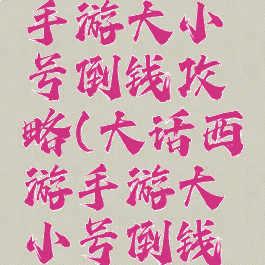 手游大小
号倒钱攻
略(大话西
游手游大
小号倒钱